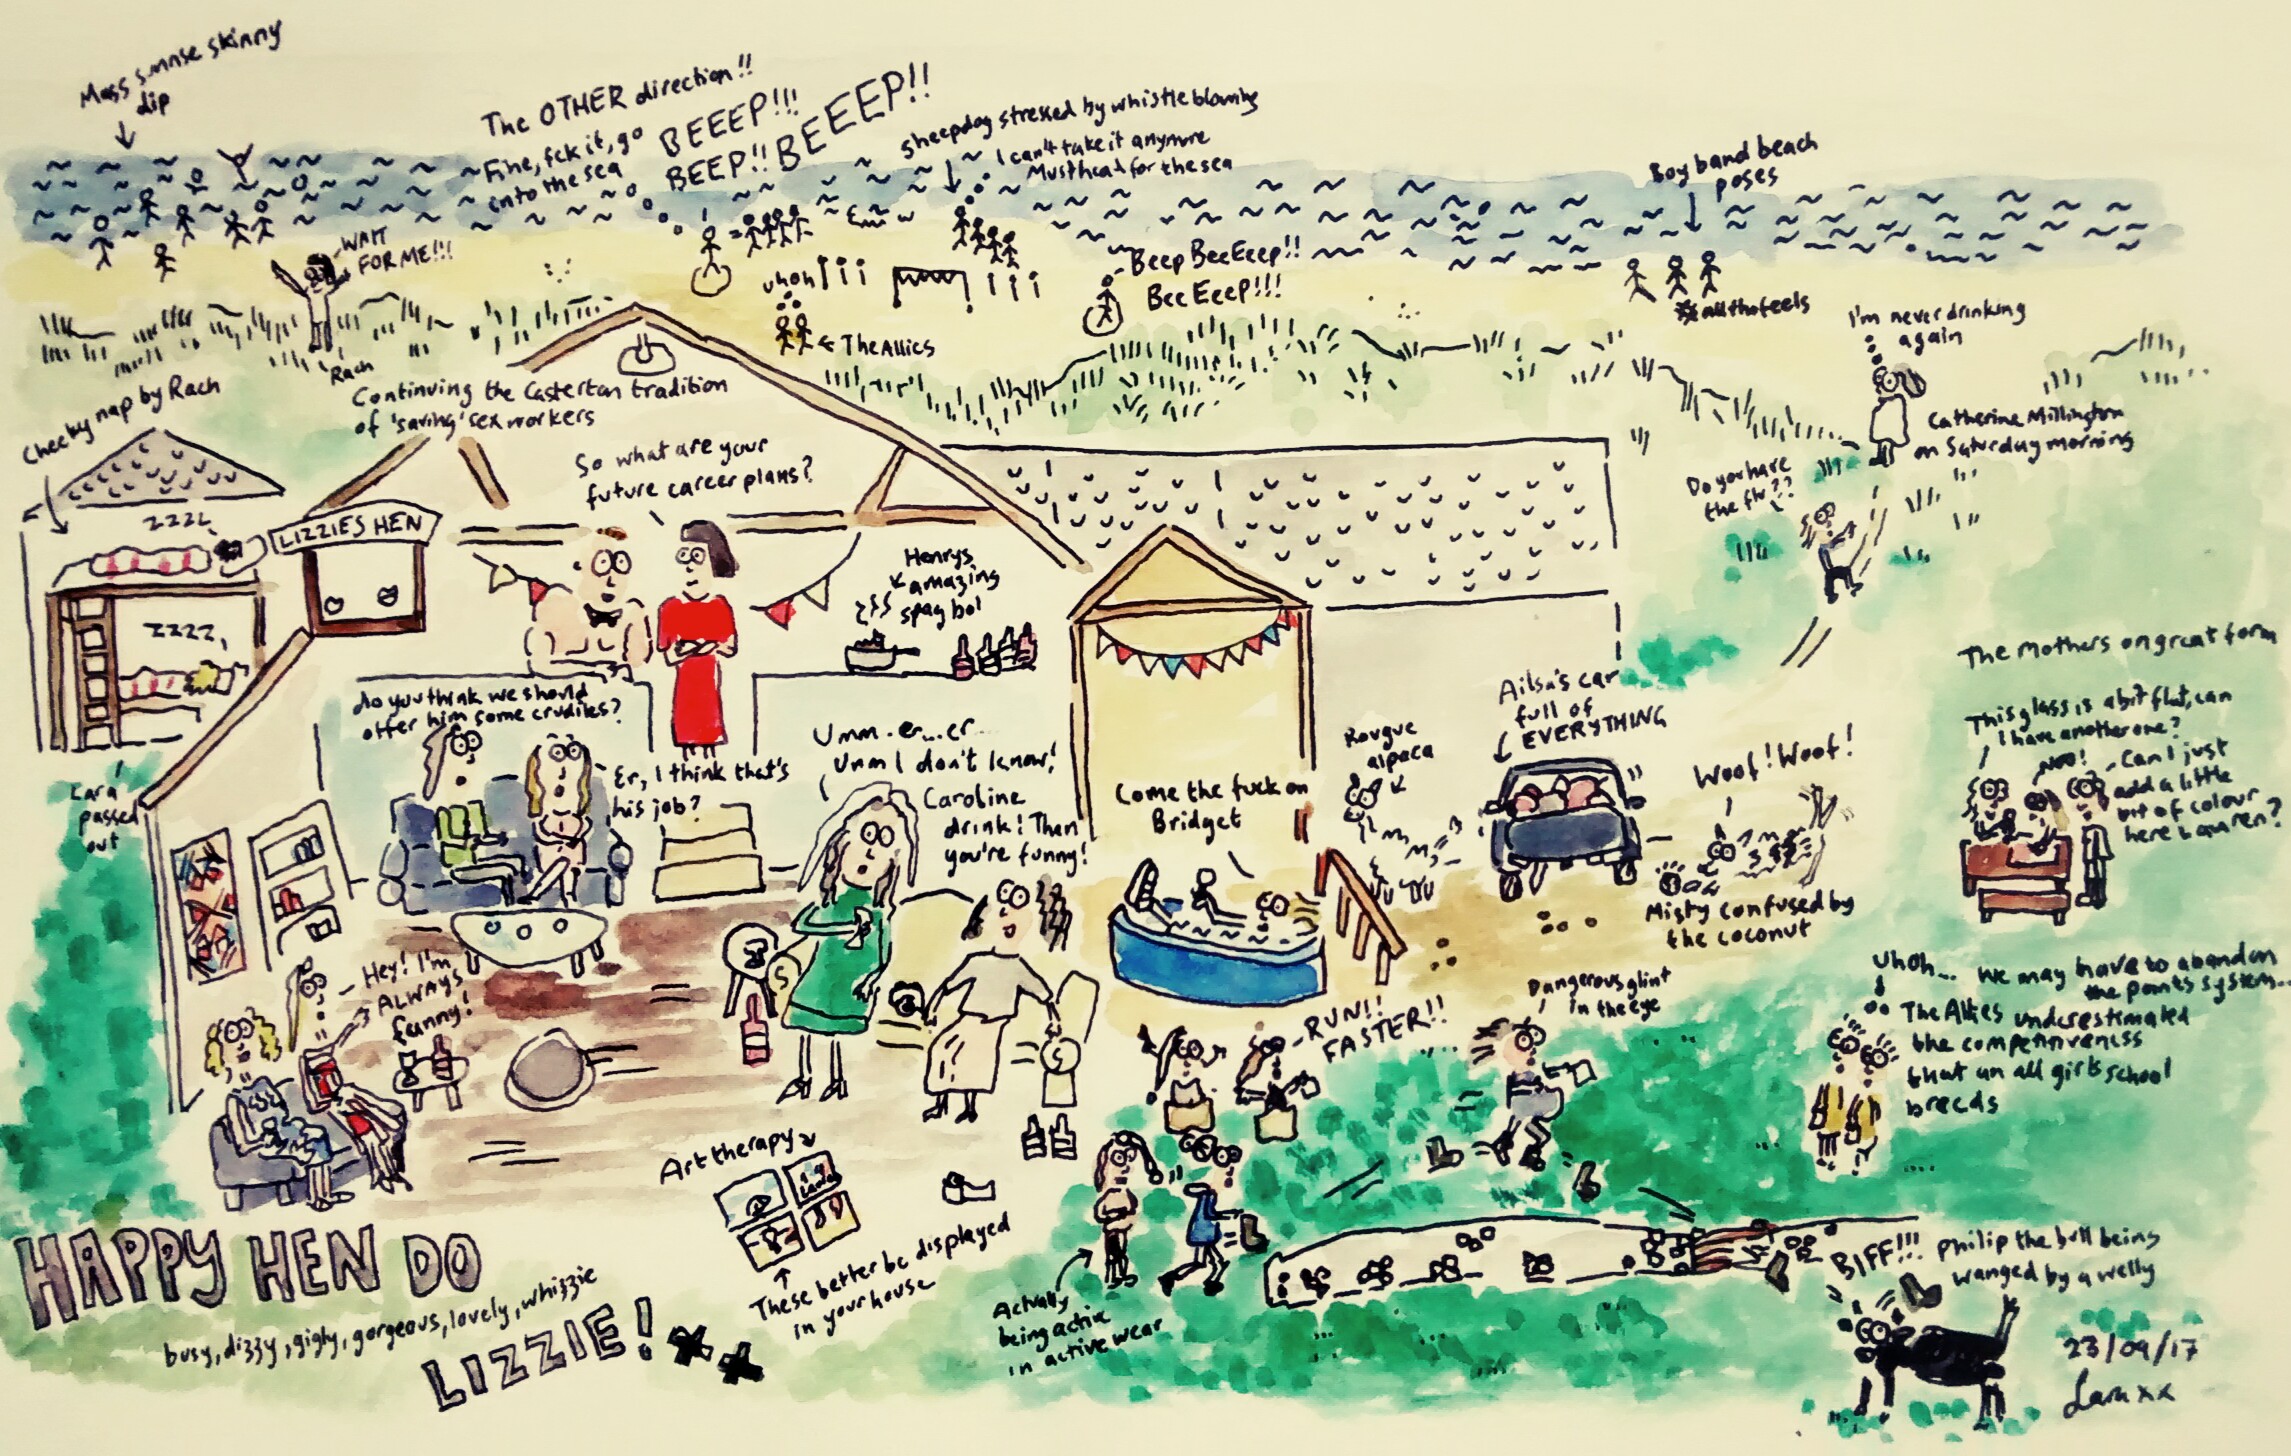 Mass sunrise skinny
dip
The OTHER direction!!
Fine, fck it, go
into the sea
BEEEP!!!
BEEP!! BEEEEP!!
sheepdog stressed by whistle blowing
I can't take it anymore
Must head for the sea
Boy band beach
poses
WAIT
FOR ME!!!
Rach
uhoh
Beep BeeEeep!!
BeeEeeP!!!
The Allies
#allthefeels
I'm never drinking
again
Catherine Millington
on Saturday morning
Do you have
the flu??
Cheeky nap by Rach
Continuing the Casterton tradition
of 'saving' sex workers
So what are your
future career plans?
zzzz
LIZZIES HEN
zzzz,
Henrys
amazing
spag bol
Lara
passed
out
do you think we should
offer him some crudites?
Er, I think that's
his job?
Umm..er...er...
Umm I don't know!
Caroline
drink! Then
you're funny!
Come the fuck on
Bridget
Rougue
alpaca
Ailsa's car
full of
EVERYTHING
Woof! Woof!
Misty confused by
the coconut
The Mothers on great form
This glass is a bit flat, can
I have another one?
NOO!
Can I just
add a little
bit of colour
here Lauren?
Hey! I'm
ALWAYS
funny!
RUN!!
FASTER!!
Dangerous glint
in the eye
Uhoh... We may have to abandon
the points system...
The Allies underestimated
the competitiveness
that an all girls school
breeds
Art therapy
These better be displayed
in your house
Actually
being active
in active wear
BIFF!!!
Philip the bull being
wanged by a welly
HAPPY HEN DO
busy, dizzy, gigly, gorgeous, lovely, whizzie
LIZZIE! xx
23/09/17
Lara xx